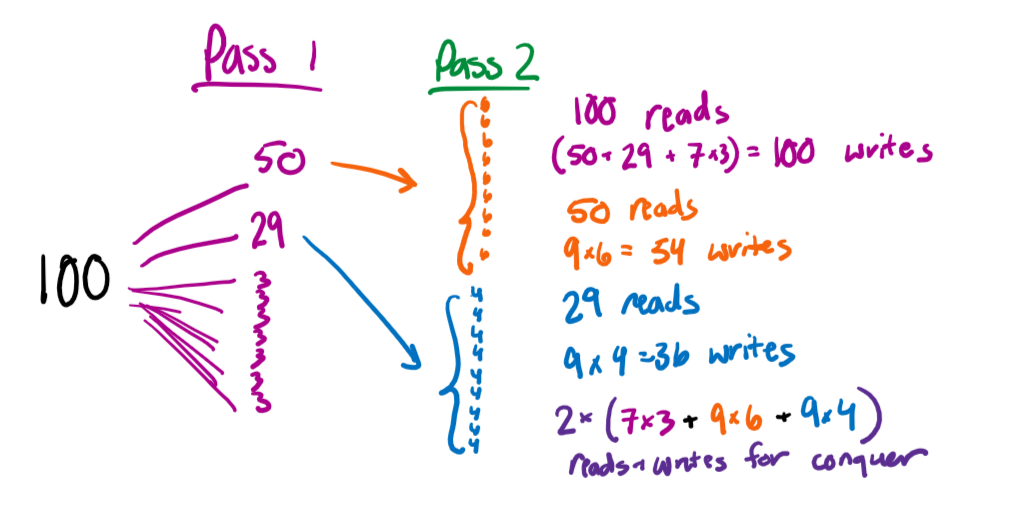 Pass 1
Pass 2
100
50
29
3
3
3
3
3
3
3
6
6
6
6
6
6
6
6
6
4
4
4
4
4
4
4
4
4
100 reads
(50+29+7×3) = 100 writes
50 reads
9×6 = 54 writes
29 reads
9×4=36 writes
2×(7×3+9×6+9×4)
reads+writes for conquer